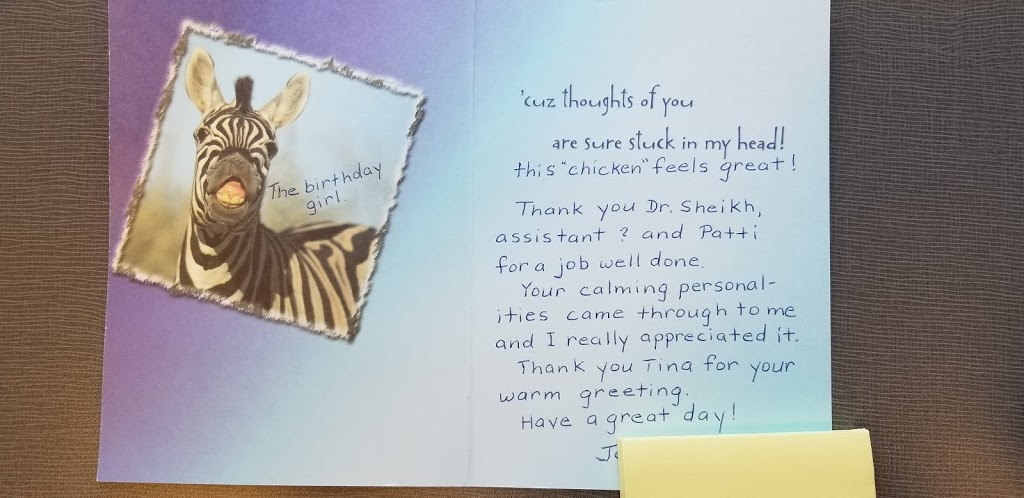 The birthday
girl.
'cuz thoughts of you
are sure stuck in my head!
this "chicken" feels great!
Thank you Dr. Sheikh,
assistant ? and Patti
for a job well done.
Your calming personal-
ities came through to me
and I really appreciated it.
Thank you Tina for your
warm greeting.
Have a great day!